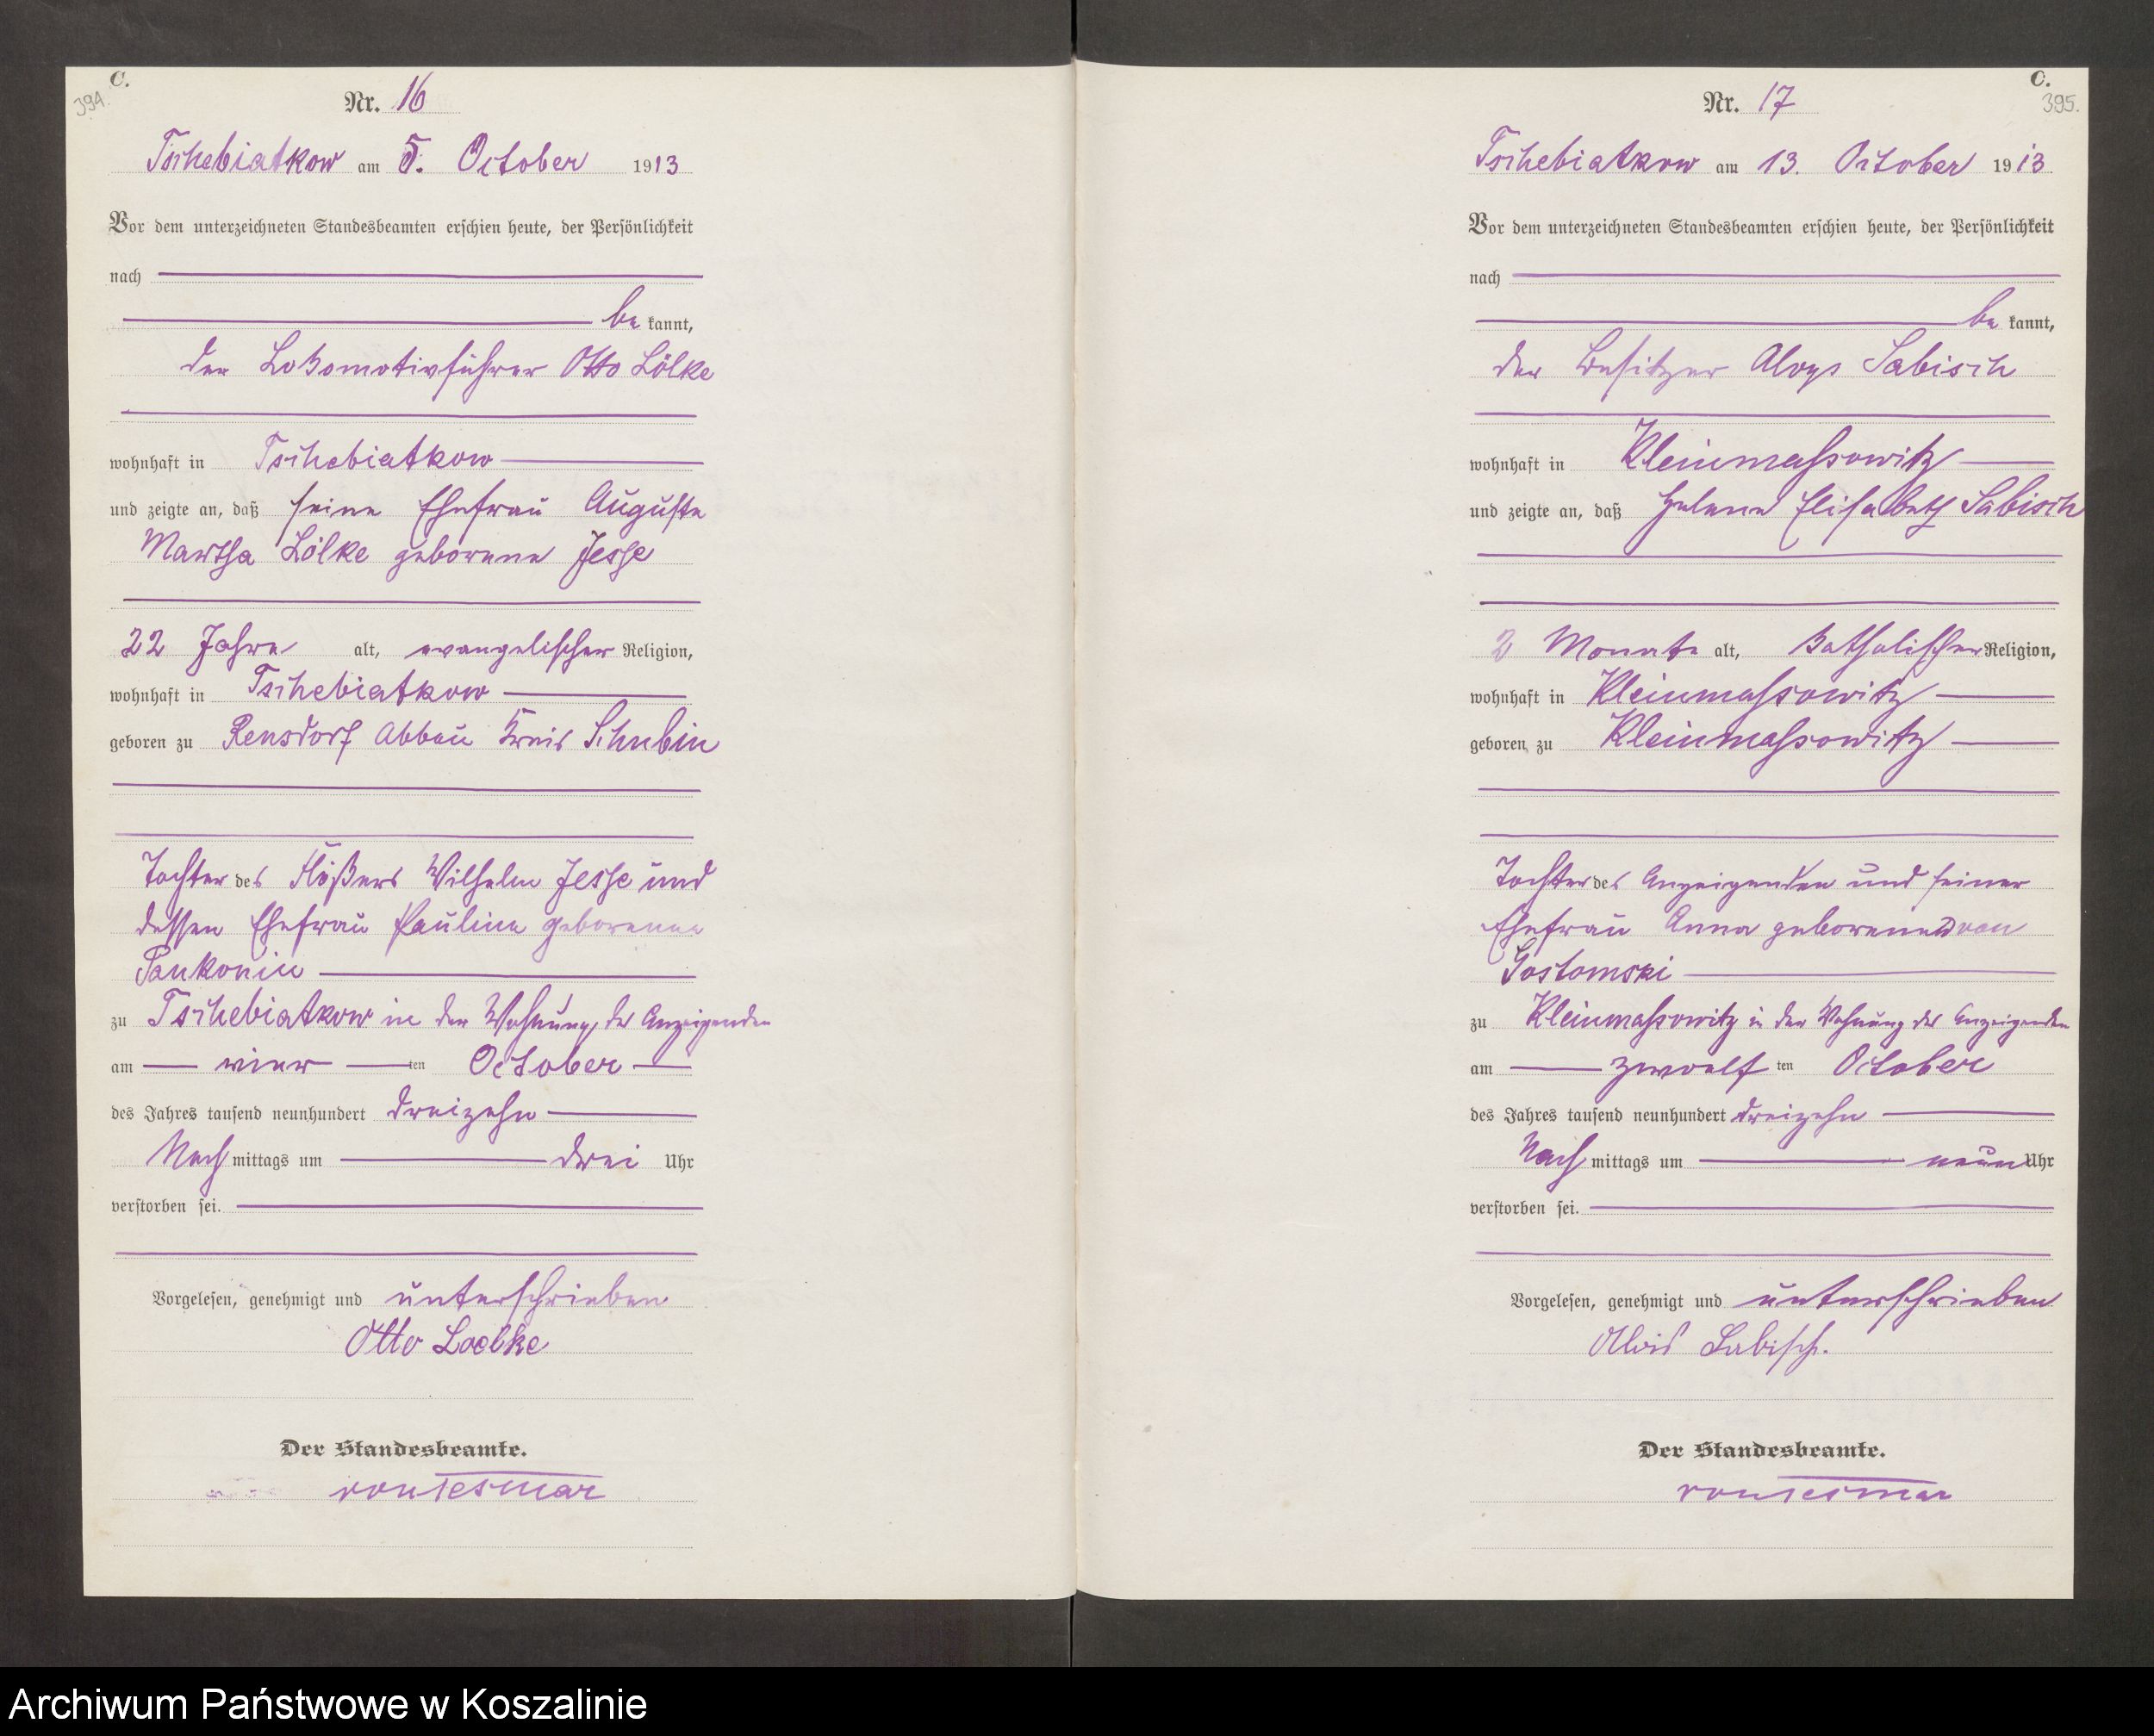 C.
394.
Nr. 16
Tschebiatkow am 5. October 1913
Vor dem unterzeichneten Standesbeamten erschien heute, der Persönlichkeit
nach
be kannt,
der Lokomotivführer Otto Lölke
wohnhaft in Tschebiatkow
und zeigte an, daß seine Ehefrau Auguste
Martha Lölke geborene Jesse
22 Jahre alt, evangelischer Religion,
wohnhaft in Tschebiatkow
geboren zu Rensdorf Abbau Kreis Schubin
Tochter des Flößers Wilhelm Jesse und
dessen Ehefrau Pauline geborenen
Pankonin
zu Tschebiatkow in der Wohnung des Anzeigenden
am vier ten October
des Jahres tausend neunhundert dreizehn
Nach mittags um drei Uhr
verstorben sei.
Vorgelesen, genehmigt und unterschrieben
Otto Loelke
Der Standesbeamte.
C.
395.
Nr. 17
Tschebiatkow am 13. October 1913
Vor dem unterzeichneten Standesbeamten erschien heute, der Persönlichkeit
nach
be kannt,
der Besitzer Aloys Sabisch
wohnhaft in Kleinmassowitz
und zeigte an, daß Helene Elisabeth Sabisch
2 Monate alt, katholischer Religion,
wohnhaft in Kleinmassowitz
geboren zu Kleinmassowitz
Tochter des Anzeigenden und seiner
Ehefrau Anna geborenen von
Gostomski
zu Kleinmassowitz in der Wohnung des Anzeigenden
am zwoelf ten October
des Jahres tausend neunhundert dreizehn
Nach mittags um neun Uhr
verstorben sei.
Vorgelesen, genehmigt und unterschrieben
Alois Sabisch.
Der Standesbeamte.
Archiwum Państwowe w Koszalinie